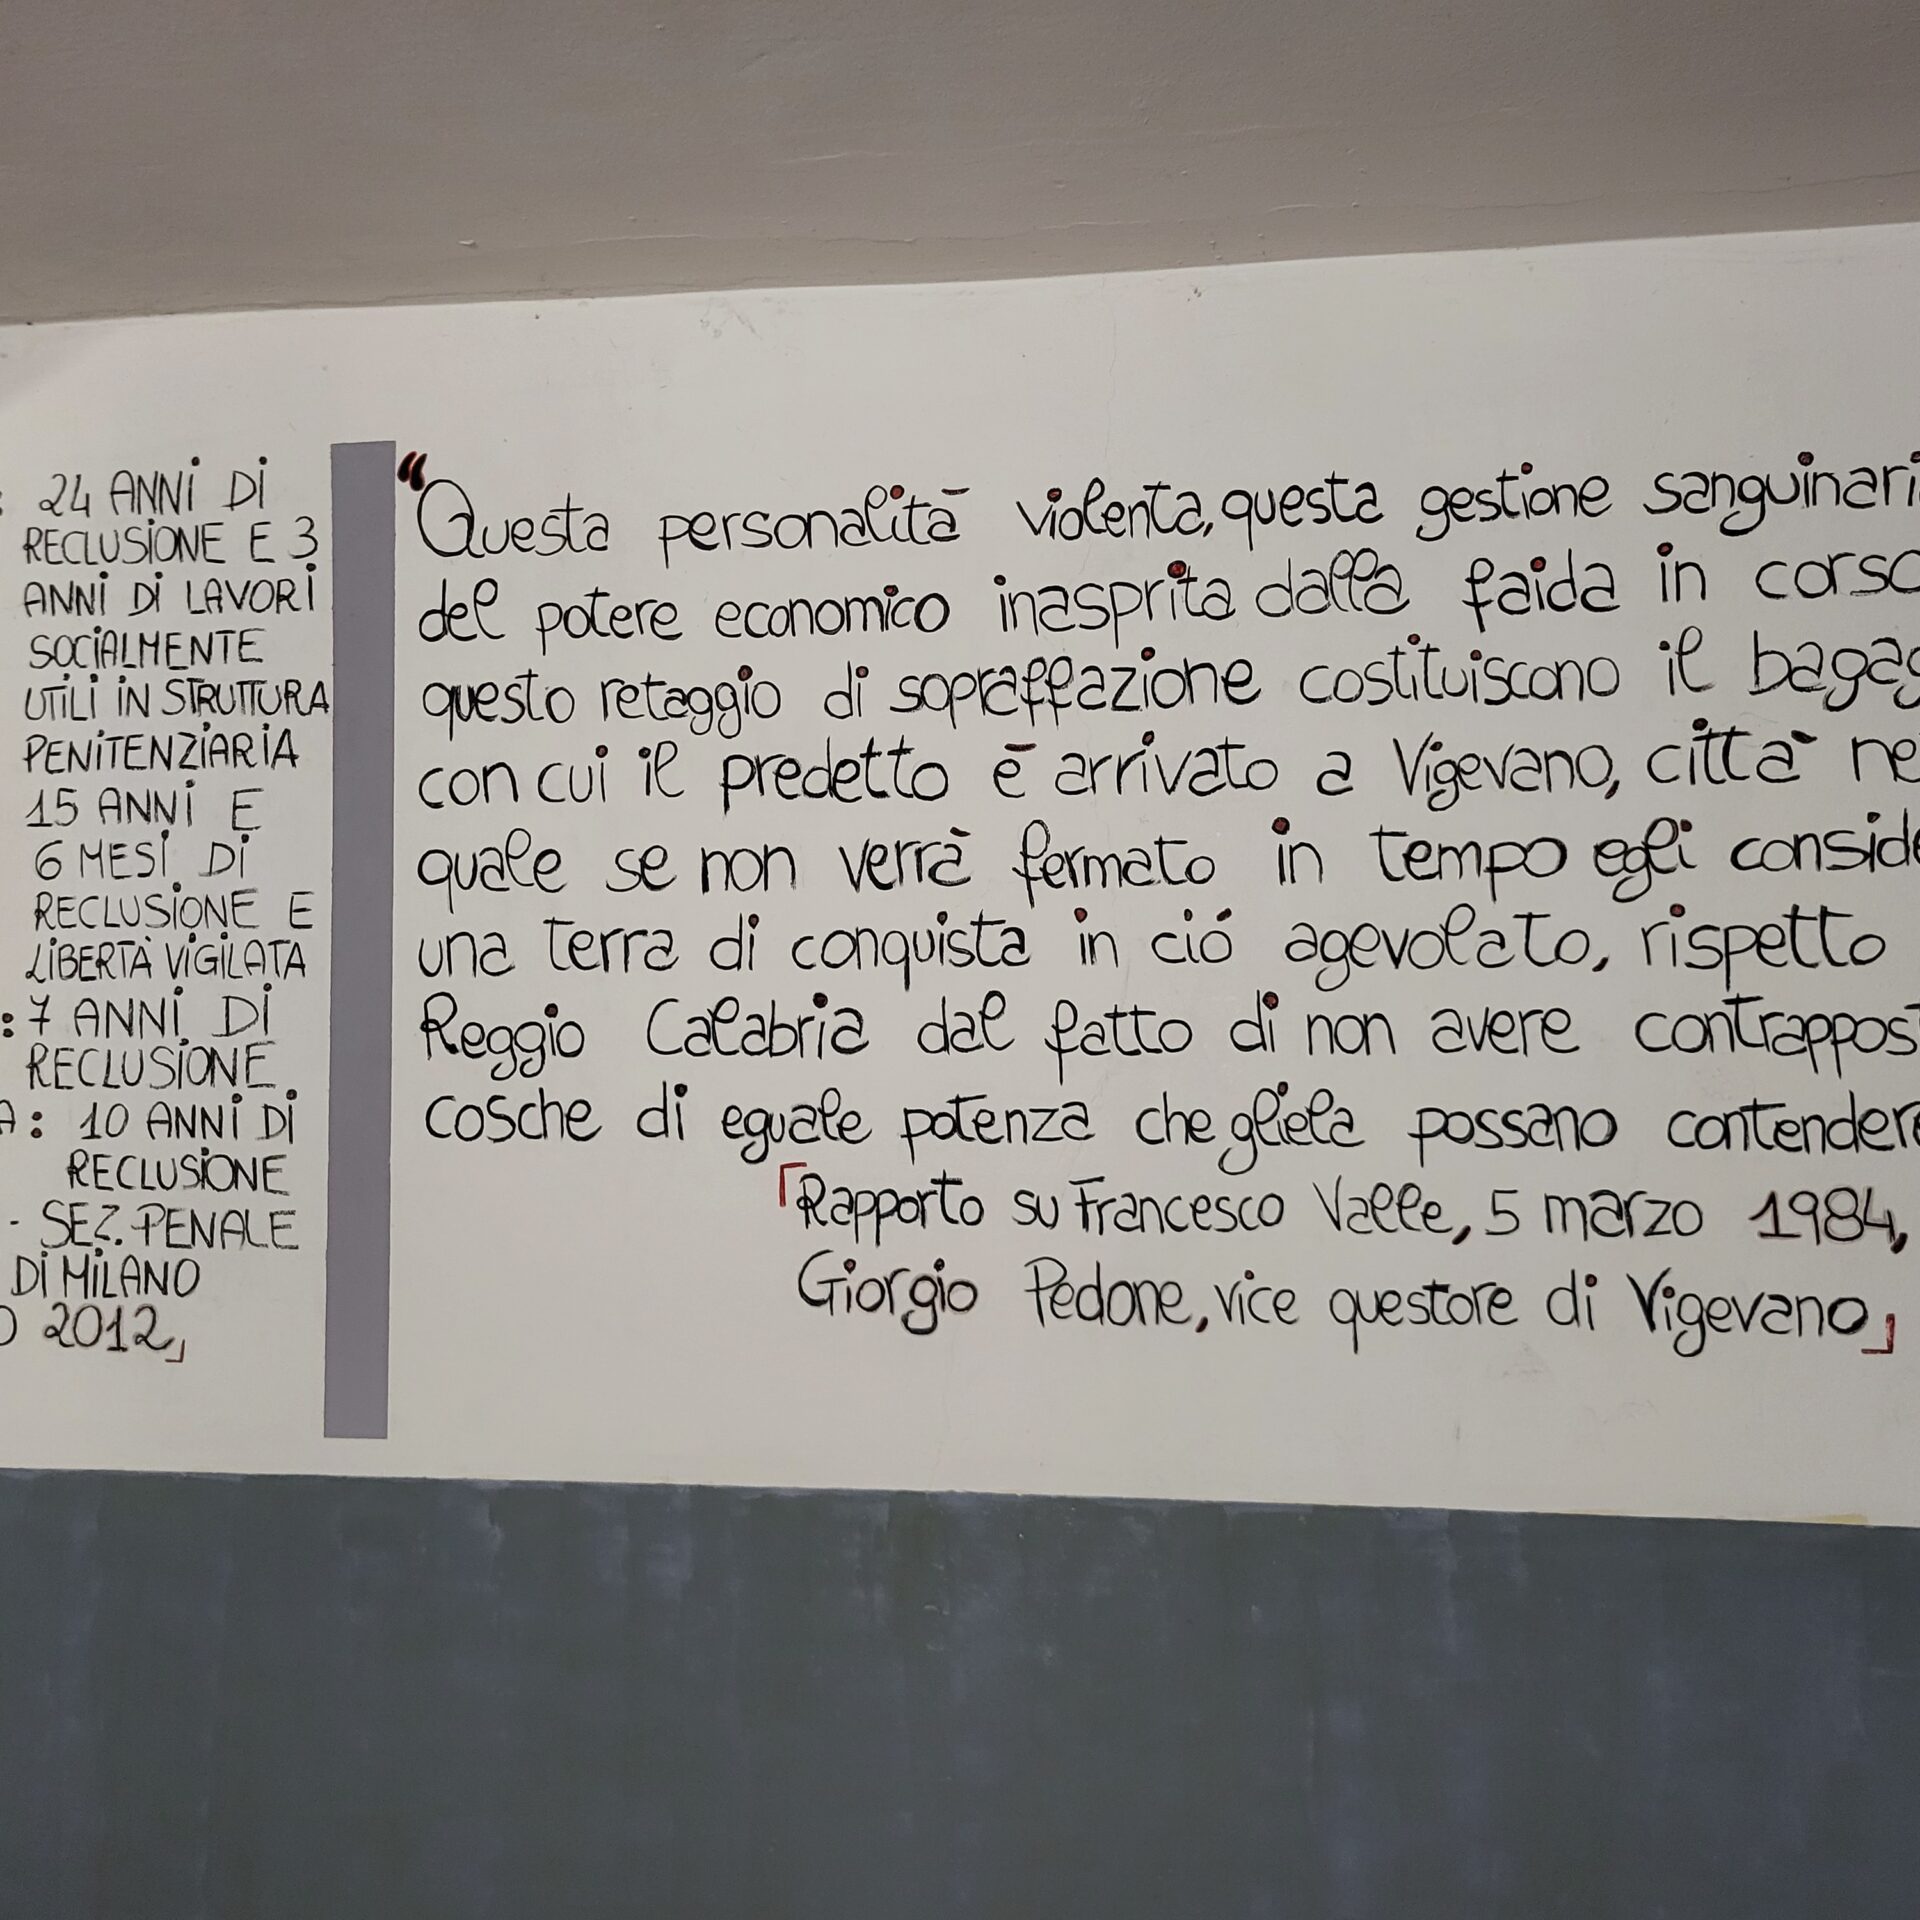 : 24 ANNI DI
RECLUSIONE E 3
ANNI DI LAVORI
SOCIALMENTE
UTILI IN STRUTTURA
PENITENZIARIA
15 ANNI E
6 MESI DI
RECLUSIONE E
LIBERTÀ VIGILATA
: 7 ANNI DI
RECLUSIONE
A: 10 ANNI DI
RECLUSIONE
- SEZ. PENALE
DI MILANO
O 2012」
“Questa personalità violenta, questa gestione sanguinari
del potere economico inasprita dalla faida in corso
questo retaggio di sopraffazione costituiscono il bagag
con cui il predetto è arrivato a Vigevano, città ne
quale se non verrà fermato in tempo egli conside
una terra di conquista in ciò agevolato, rispetto
Reggio Calabria dal fatto di non avere contrappost
cosche di eguale potenza che gliela possano contendere
「Rapporto su Francesco Valle, 5 marzo 1984,
Giorgio Pedone, vice questore di Vigevano」